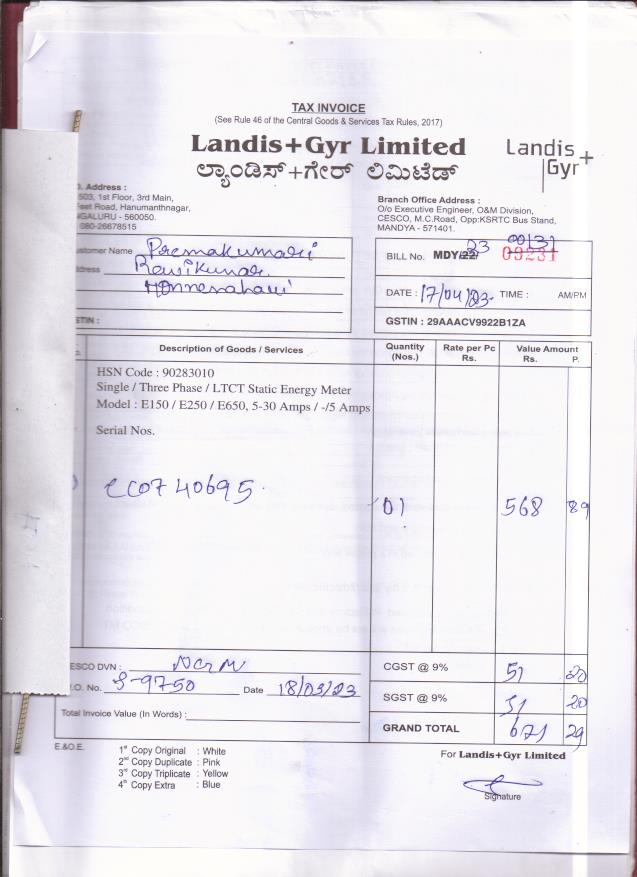 TAX INVOICE
(See Rule 46 of the Central Goods & Services Tax Rules, 2017)
Landis+Gyr Limited
ಲ್ಯಾಂಡಿಸ್+ಗೇರ್ ಲಿಮಿಟೆಡ್
Landis+
Gyr
Address :
503, 1st Floor, 3rd Main,
Road, Hanumanthnagar,
- 560050.
080-26678515
Branch Office Address :
O/o Executive Engineer, O&M Division,
CESCO, M.C.Road, Opp:KSRTC Bus Stand,
MANDYA - 571401.
Name Premakumari
BILL No. MDY/22/ 23 00131 00231
DATE : 17/04/23 TIME : AM/PM
GSTIN : 29AAACV9922B1ZA
Description of Goods / Services
Quantity (Nos.)
Rate per Pc Rs.
Value Amount
Rs. P.
HSN Code : 90283010
Single / Three Phase / LTCT Static Energy Meter
Model : E150 / E250 / E650, 5-30 Amps / -/5 Amps
Serial Nos.
CC0740695 01 568 89
DVN :
CGST @ 9% 51 20
No. S-9750 Date 18/03/23
SGST @ 9% 51 20
Total Invoice Value (In Words) :
GRAND TOTAL 671 29
E.&O.E.
1st Copy Original : White
2nd Copy Duplicate : Pink
3rd Copy Triplicate : Yellow
4th Copy Extra : Blue
For Landis+Gyr Limited
Signature